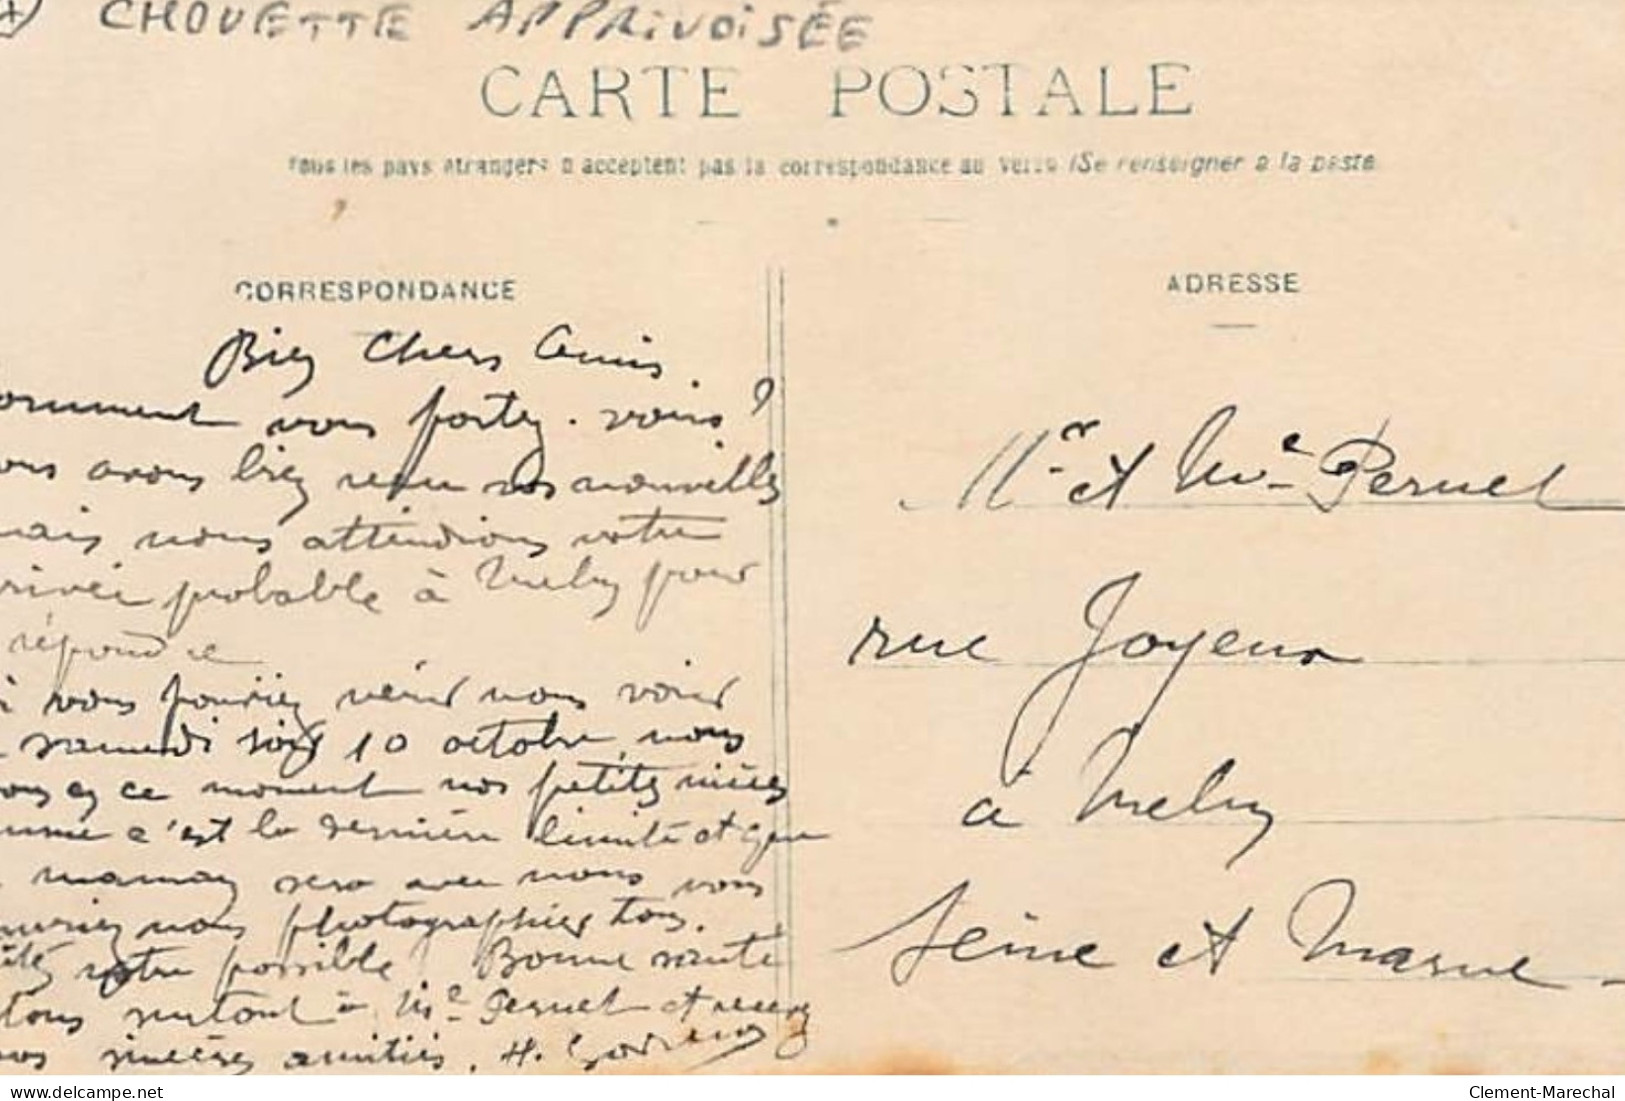 CHOUETTE APPRIVOISÉE
CARTE POSTALE
Tous les pays étrangers n'acceptent pas la correspondance au verso (Se renseigner à la poste
CORRESPONDANCE
Bien Chers Amis.
omment vous portez-vous?
ous avons bien reçu vos nouvelles
mais nous attendions votre
rrivée probable à Melun pour
répondre
si vous pouviez venir nous voir
samedi soir 10 octobre nous
ons en ce moment nos petites nièces
omme c'est la dernière limite et que
maman sera avec nous vous
ourriez nous photographier tous.
aites votre possible. Bonne santé
tous surtout à Me Pernet et recevez
nos sincères amitiés. H.
ADRESSE
Mr et Me Pernet
rue Joyeux
à Melun
Seine et Marne
delcampe.net
Clement-Marechal